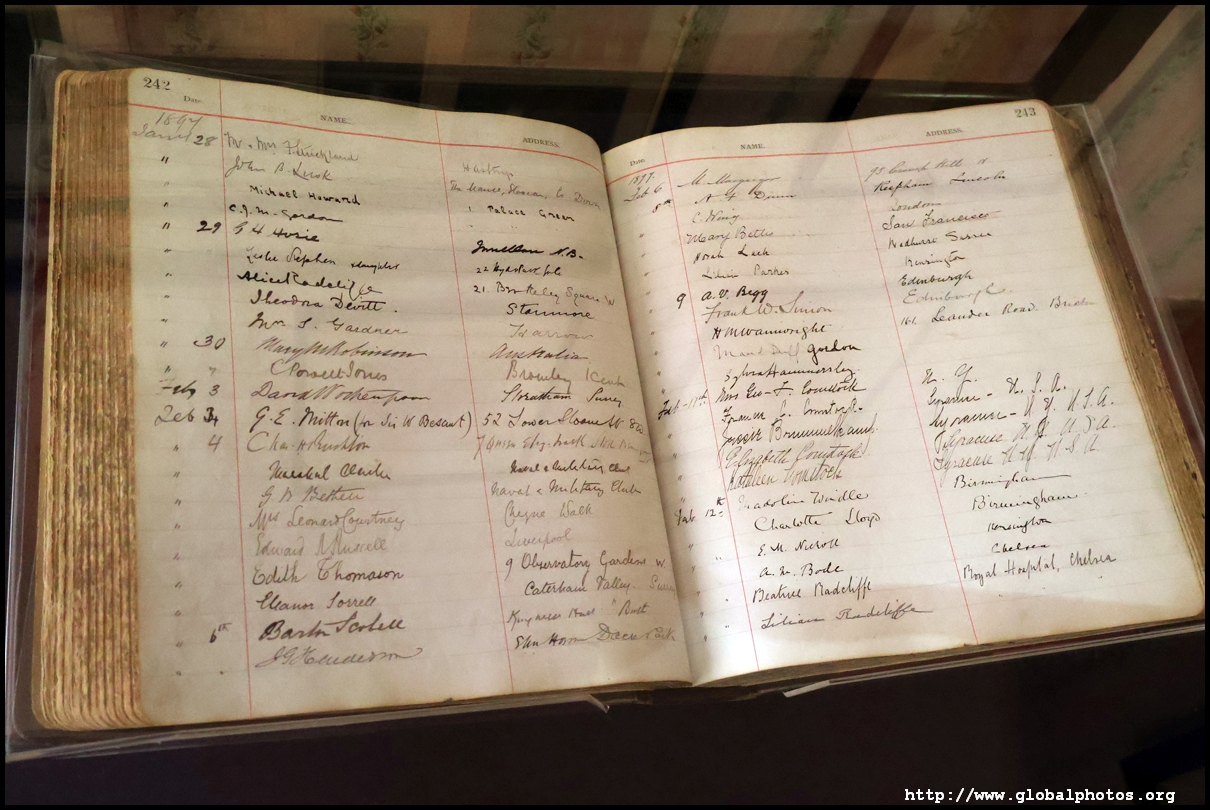 242
Date NAME ADDRESS
1897
Jany 28 Mr & Mrs Strickland Hastings
" John B. Lusk The Manse, Co Down
" Michael Howard 1 Palace Green
" C.J. M. Gordon " "
" 29 Hosie N.B.
" Leslie Stephen & daughter 22 Hyde Park Gate
" Alice Radcliffe 21. Berkeley Square W
" Theodora Devitt. Stanmore
" Mrs S. Gardner Harrow
" 30 Mary M Robinson Australia
" " C Powell Jones Bromley Kent
Feb 3 David Streatham Surrey
Feb 3 G. E. Mitton (for Sir W Besant) 52 Lower Sloane St SW
" 4 Chas. H
" Marshal Clarke Naval & Military Club
" G. W Bethell Naval & Military Club
" Mrs Leonard Courtney Cheyne Walk
" Edward R Russell Liverpool
" Edith Thomason 9 Observatory Gardens W.
" Eleanor Sorrell Caterham Valley. Surrey
" 6th Barton Scobell Kingwell Hall Bath
" J G Henderson Park
243
Date NAME. ADDRESS.
1897.
Feb 6 M. Macgregor Camp Hill W
8th A. G. Dunn Reepham Lincoln
" C. Wing London
" Mary Betts San Francisco
" Norah Leek Wadhurst Sussex
" Lilian Parkes Kensington
9 A. V. Begg Edinburgh
" Frank W. Simon Edinburgh.
" H M Wainwright 161. Leander Road. Brixton
" Maud Duff Gordon
" Sylvia Hammersley.
Feb - 11th Mrs Geo - F. Comstock N. Y.
" Comstock. Syracuse - U. S. A.
" Jessie Syracuse - N Y U.S.A.
" Elizabeth Comstock Syracuse N. Y. U. S. A.
" Kathleen Comstock Syracuse N. Y. U. S. A.
Feb. 12th Madoline Windle Birmingham
" Charlotte Lloyd Birmingham.
" E. M. Nicholl Kensington
" A. M. Bode Chelsea
" Beatrice Radcliffe Royal Hospital, Chelsea
" Lilian Radcliffe
http://www.globalphotos.org